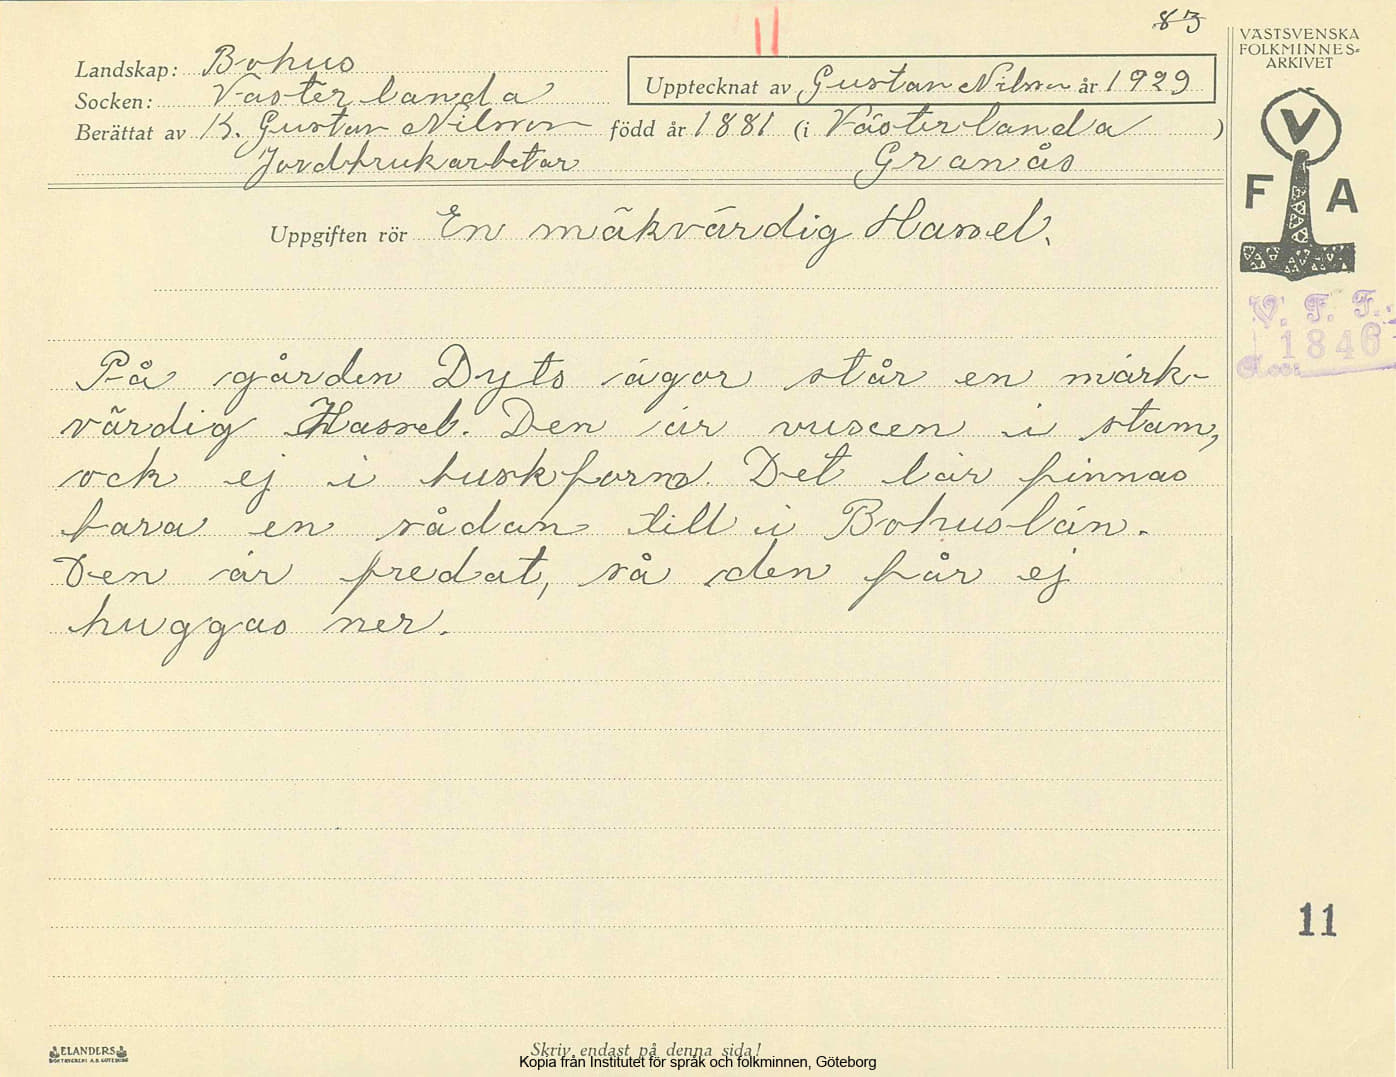 83
Landskap: Bohus
Socken: Västerlanda
Upptecknat av Gustav Nilsson år 1929
Berättat av K. Gustav Nilsson född år 1881 (i Västerlanda )
Jordbrukarbetar Granås
Uppgiften rör En mäkvärdig Hassel.
På gården Dyts ägor står en märk-
värdig Hassel. Den är vuxen i stam,
ock ej i buskform. Det lär finnas
bara en sådan till i Bohuslän.
Den är fredat, så den får ej
huggas ner.
VÄSTSVENSKA
FOLKMINNES-
ARKIVET
V
F A
V. F. F.
1846
Acc:
11
ELANDERS
BOKTRYCKERI A.B. GÖTEBORG
Skriv endast på denna sida!
Kopia från Institutet för språk och folkminnen, Göteborg